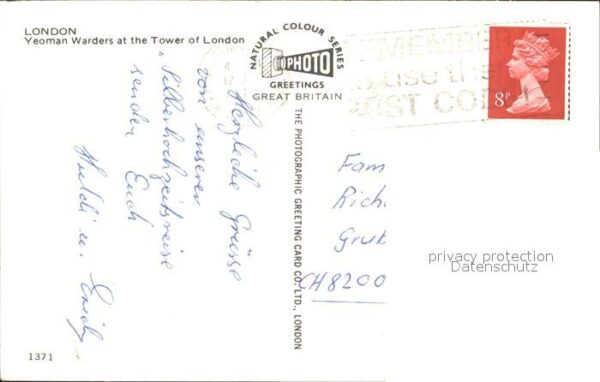 LONDON
Yeoman Warders at the Tower of London
NATURAL COLOUR SERIES
PHOTO
GREETINGS
GREAT BRITAIN
REMEMBER
to use the
POST CODE
8P
Herzliche Grüsse
von unserer
„Silberhochzeitsreise
senden Euch
u.
THE PHOTOGRAPHIC GREETING CARD CO. LTD., LONDON
Fam
Rich
Grub
CH8200
privacy protection
Datenschutz
1371